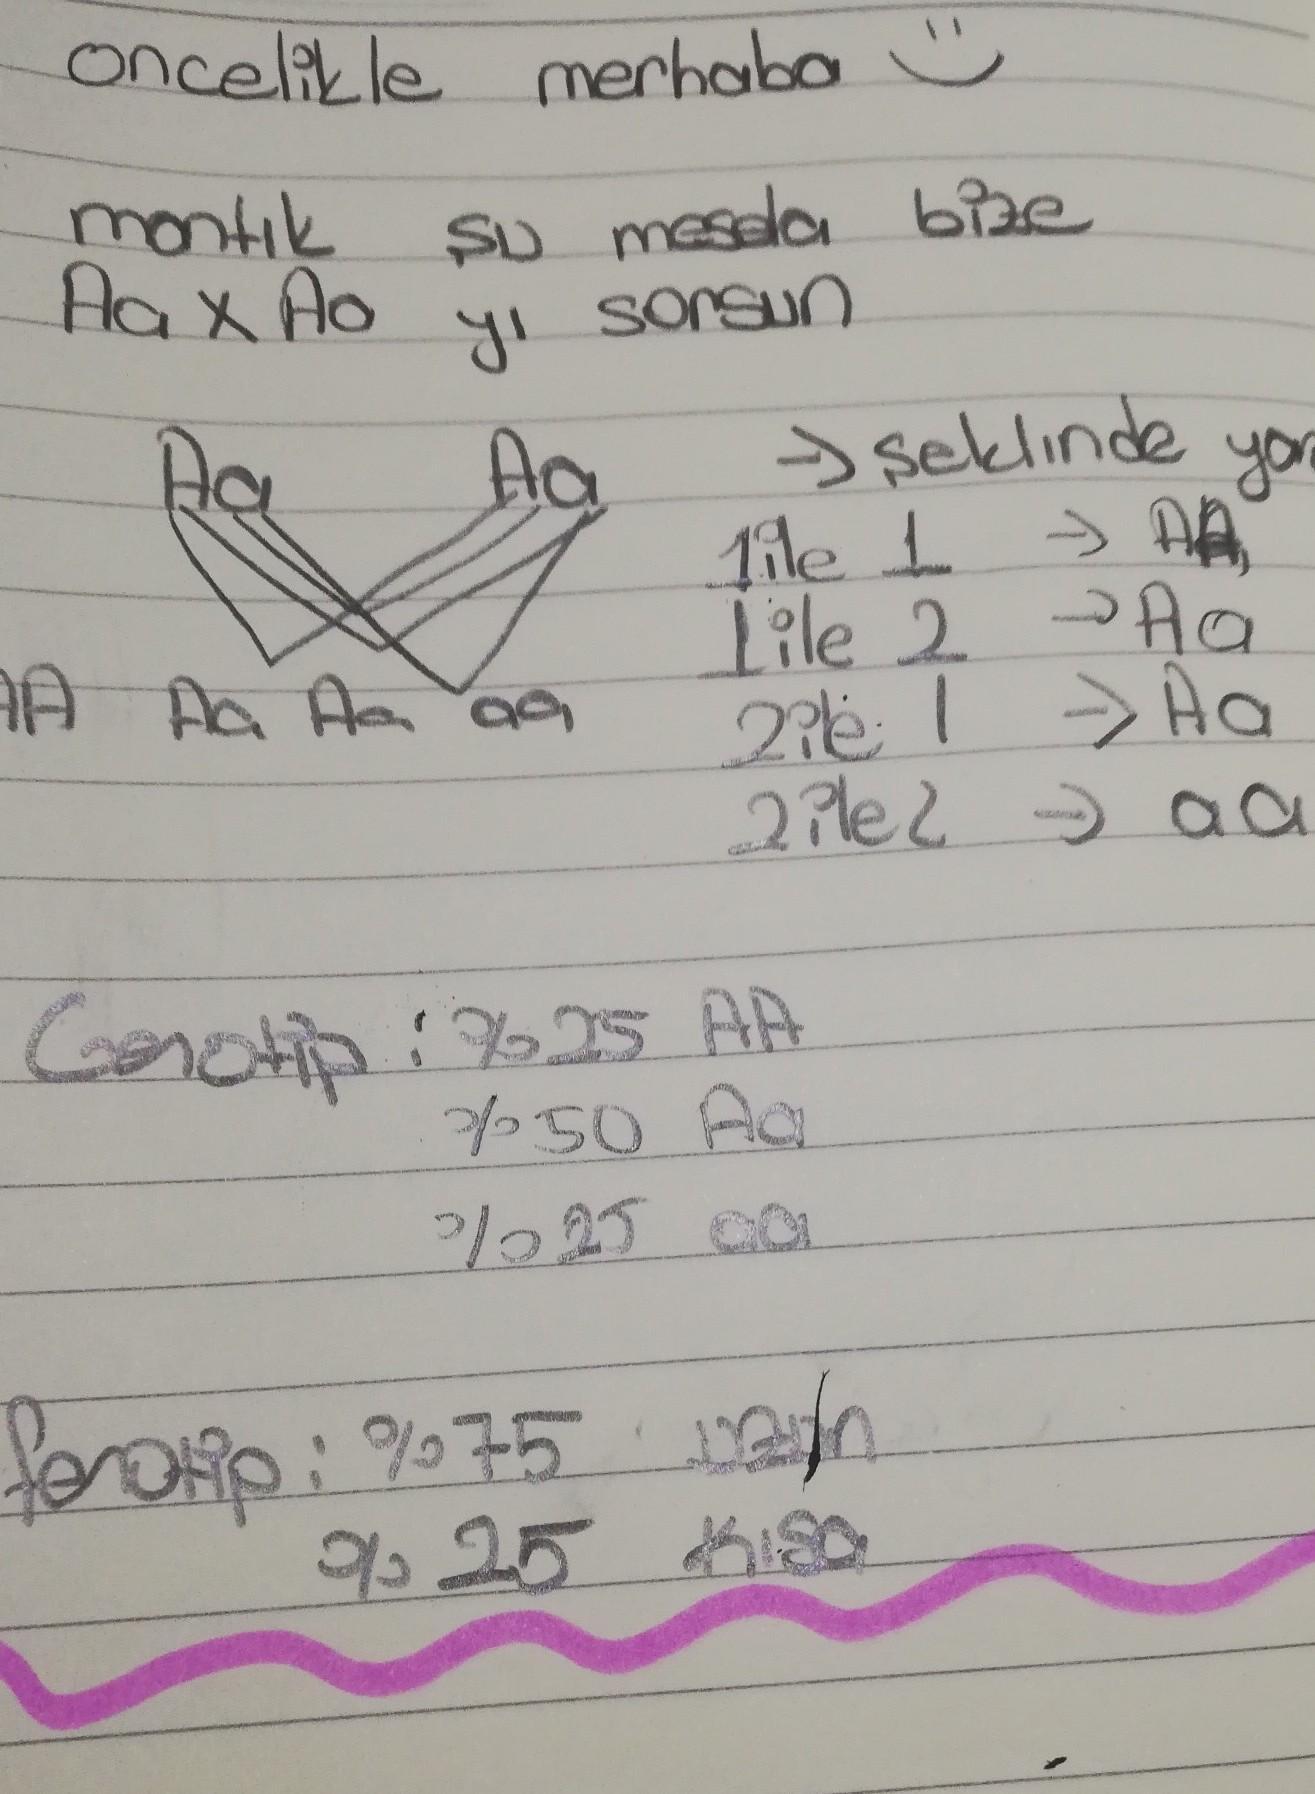 oncelikle merhaba
mantık şu mesela bize
Aa x Aa yı sorsun
Aa Aa
AA Aa Aa aa
→ şeklinde
1 ile 1 → AA
1 ile 2 → Aa
2 ile 1 → Aa
2 ile 2 → aa
Genotip : %25 AA
%50 Aa
%25 aa
fenotip : %75 uzun
%25 kısa